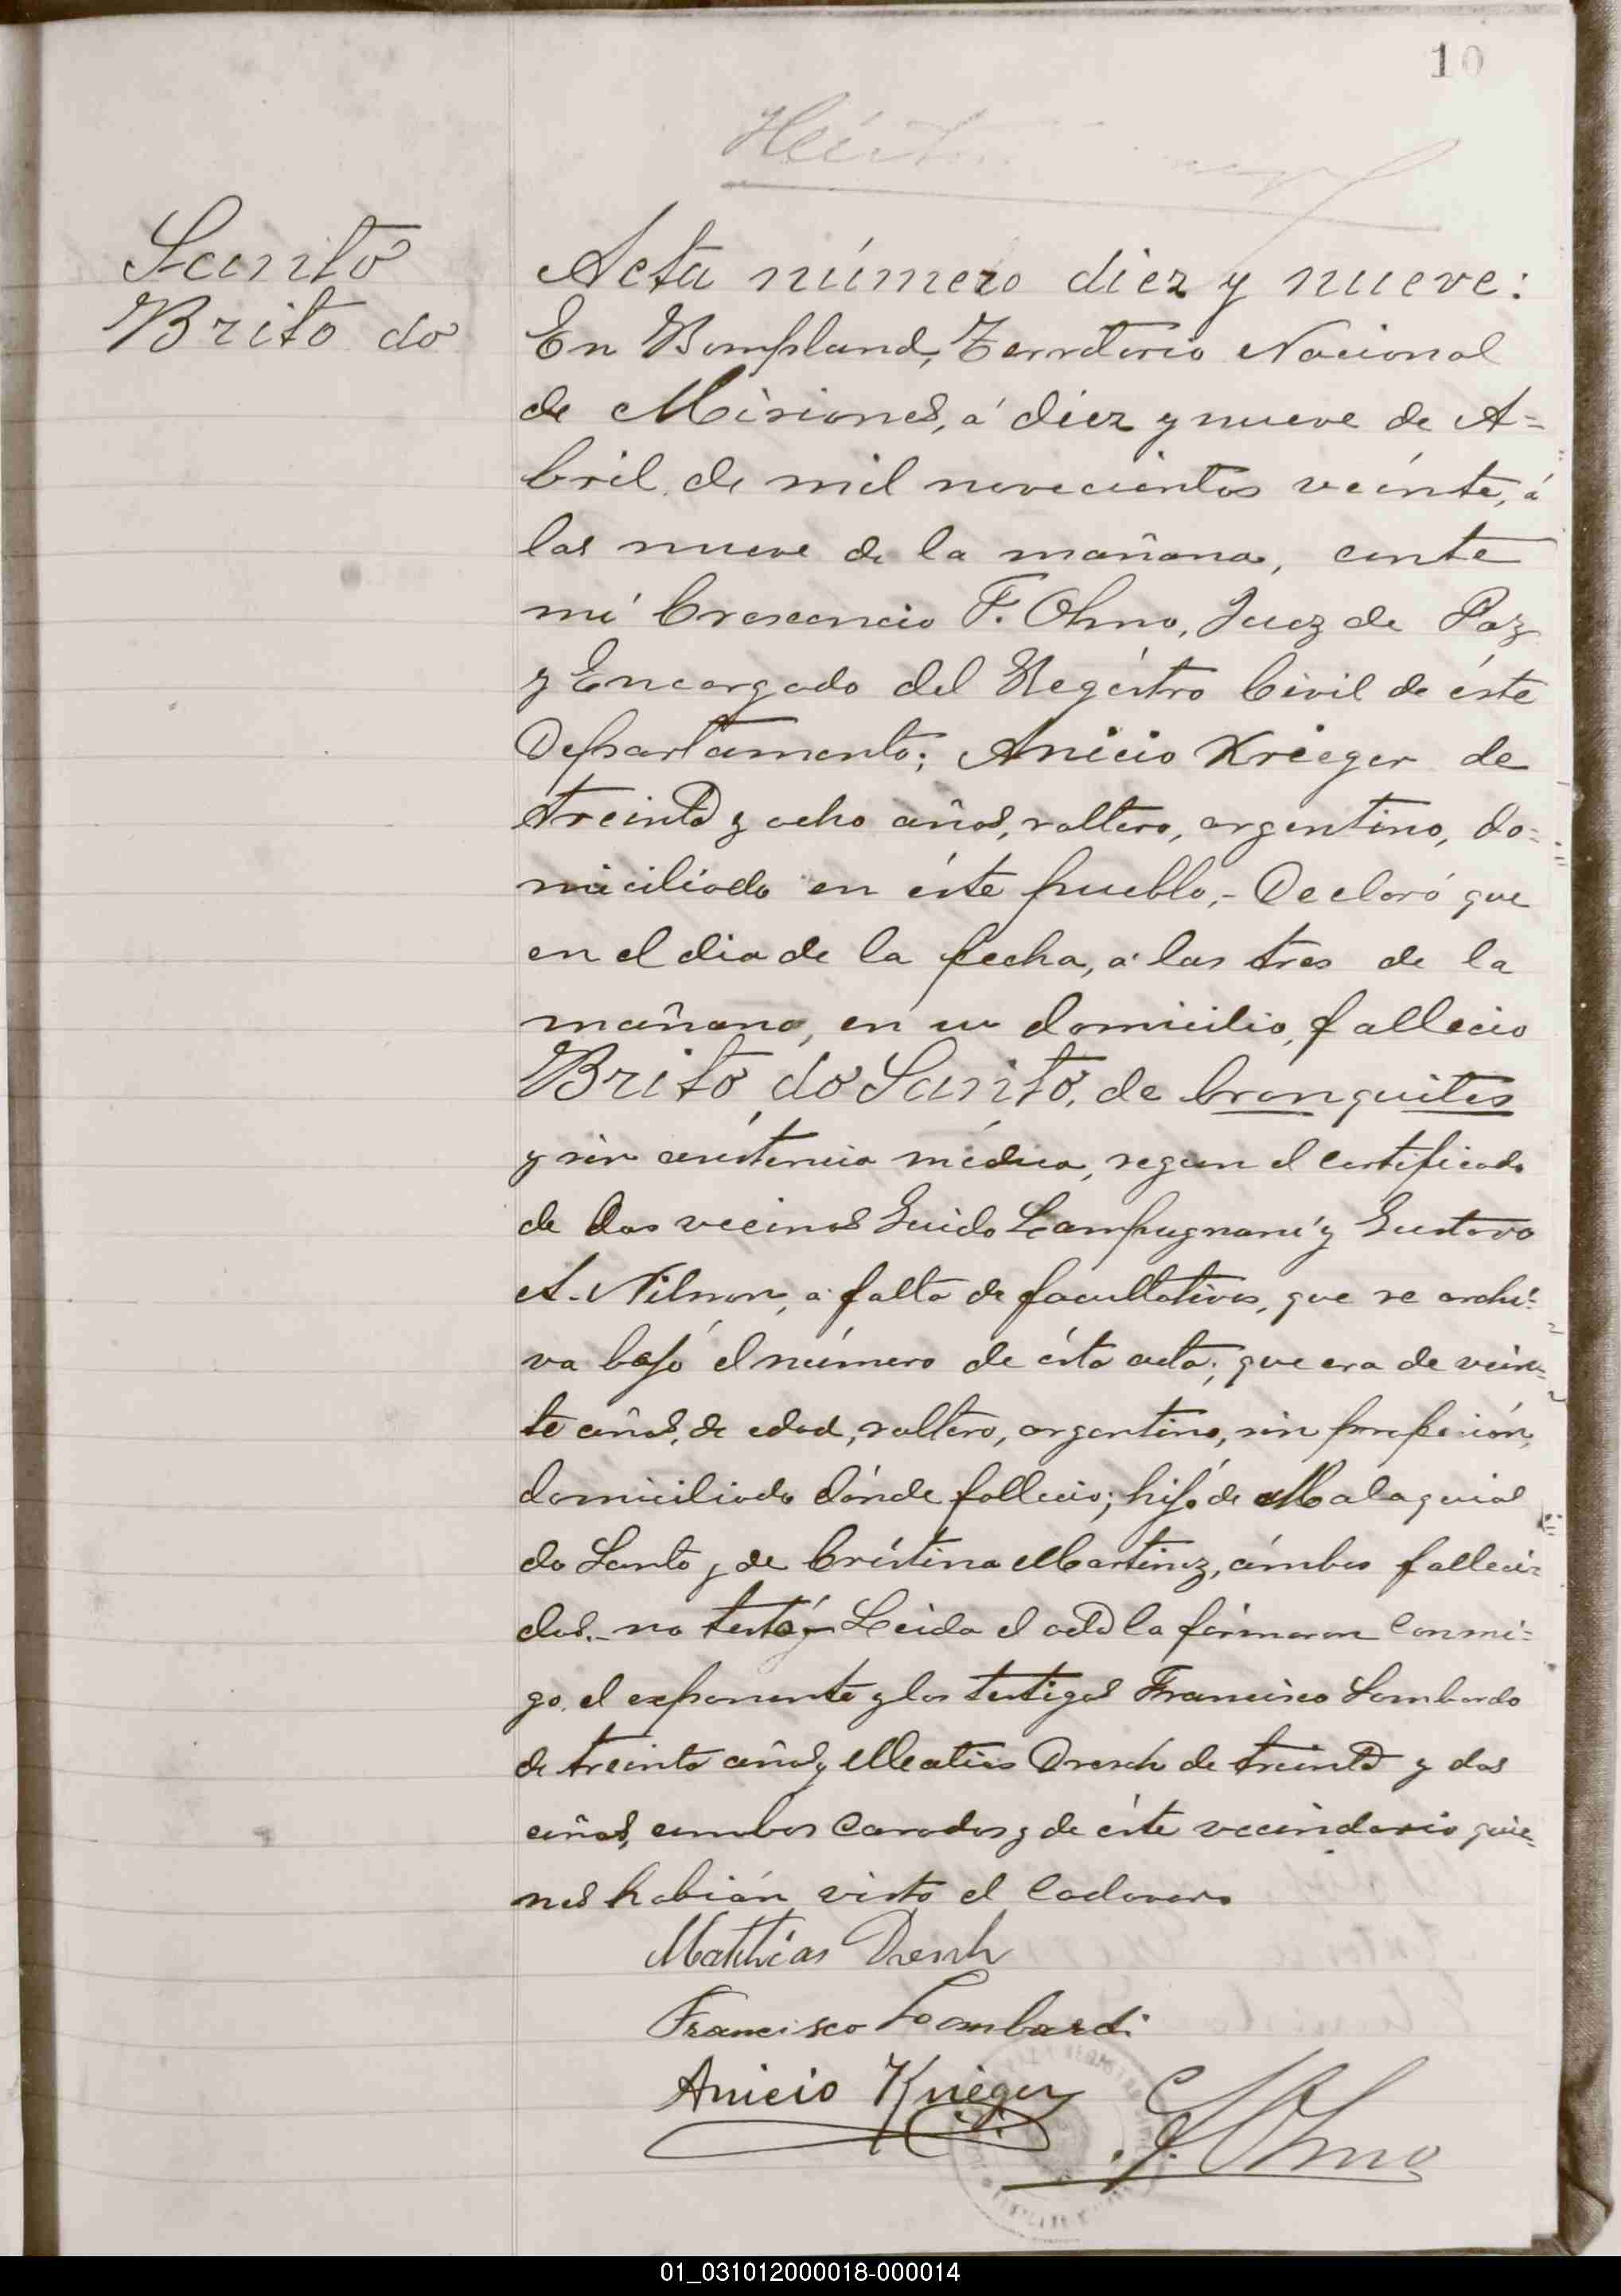 10
Santo
Brito do
Acta número diez y nueve:
En Bompland, Territorio Nacional
de Misiones, á diez y nueve de A=
bril de mil novecientos veínte, á
las nueve de la mañana, ante
mí Crescencio F. Ohno, Juez de Paz
y Encargado del Regístro Civil de éste
Departamento; Anicio Krieger de
treinta y ocho años, soltero, argentino, do=
miciliado en éste pueblo,- Declaró que
en el dia de la fecha, a las tres de la
mañana, en su domicilio, fallecio
Brito do Santo, de bronquites
y sin asistencia médica, segun el certificado
de dos vecinos Guido Lampugnani y Gustavo
A. Nilson, a falta de facultativos, que se archi=
va bajó el número de ésta acta; que era de vein=
te años, de edad, soltero, argentino, sin profesión,
domiciliado dónde fallecio; hijó de Malaquias
do Santo y de Crístina Martinez, ámbos falleci=
dos.- no testó y Leida el acta la firmaron conmi=
go, el exponente y los testigos Francisco Lombardo
de treinta años y Matias Dresch de treinta y dos
años, ambos casados y de éste vecindario quie=
nes habián visto el cadaver.
Matthias Dresch
Francisco Lombardi
Anicio Krieger
F. Ohno
01_031012000018-000014